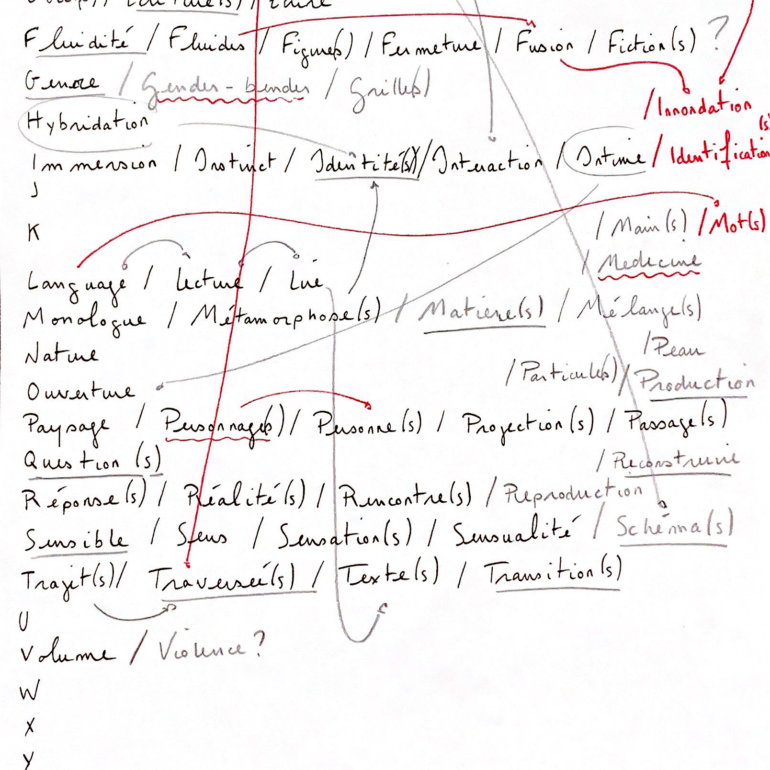 Fluidité / Fluides / Figure(s) / Fermeture / Fusion / Fiction(s) ?
Genre / Gender-bender / Grille(s)
/ Innondation
Hybridation
Immersion / Instinct / Identité(s) / Interaction / Intime / Identification(s)
J
K
/ Main(s) / Mot(s)
/ Medecine
Language / Lecture / Lire
Monologue / Métamorphose(s) / Matière(s) / Mélange(s)
Nature
/ Peau
Ouverture
/ Particule(s) / Production
Paysage / Personnage(s) / Personne(s) / Projection(s) / Passage(s)
Question(s)
/ Reconstruire
Réponse(s) / Réalité(s) / Rencontre(s) / Reproduction
Sensible / Sens / Sensation(s) / Sensualité / Schéma(s)
Trajet(s) / Traversée(s) / Texte(s) / Transition(s)
U
Volume / Violence ?
W
X
Y